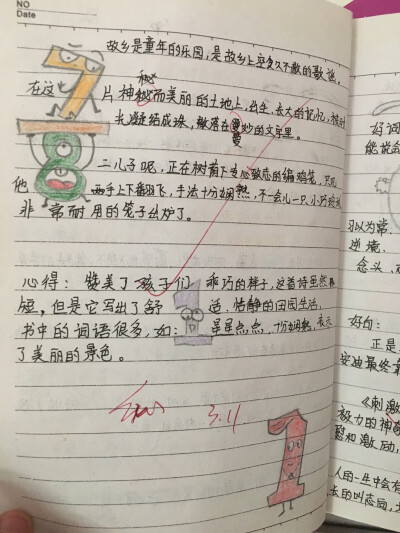 NO
Date
故乡是童年的乐园,是故乡上空久久不散的歌谣。
在这片神秘而美丽的土地上,出生、长大的记忆,被时
长凝结成珠,散落在曼妙的文字里。
二儿子呢,正在树荫下专心致志的编鸡笼,只见
他两手上下翻飞,手法十分娴熟,不一会儿一只小巧
非常耐用的笼子出炉了。
心得:赞美了孩子们乖巧的样子,这首诗虽然
短,但是它写出了舒适、恬静的田园生活,
书中的词语很多,如:星星点点、十分娴熟,表示
了美丽的景色。
3.11
好词
能说会
习以为常
逆境
念头
好句:
正是
安迪最终
《刺激
极力的神
慰和激励,
人的一生中会有
长的叫态局,